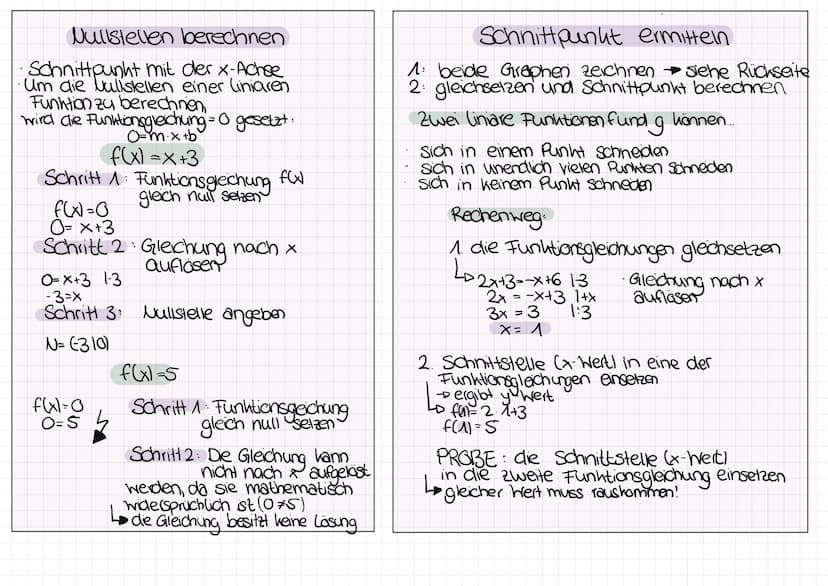 Nullstellen berechnen
· Schnittpunkt mit der x-Achse
· Um die Nullstellen einer liniaren
Funktion zu berechnen,
wird die Funktionsgleichung = 0 gesetzt:
0=m·x+b
f(x)=x+3
Schritt 1: Funktionsglechung f(x)
gleich null setzen
f(x)=0
0= x+3
Schritt 2: Gleichung nach x
auflösen
0=x+3 |-3
-3=x
Schritt 3: Nullstelle angeben
N= (-3|0)
f(x)=5
f(x)=0
0=5
Schritt 1: Funktionsgeichung
gleich null setzen
Schritt 2: Die Gleichung kann
nicht nach x aufgelöst
werden, da sie mathematisch
widerspruchlich ist (0≠5)
↳ die Gleichung besitzt keine Lösung
Schnittpunkt ermitteln
1: beide Graphen zeichnen → siehe Rückseite
2: gleichsetzen und Schnittpunkt berechnen
Zwei liniare Funktionen f und g können...
· sich in einem Punkt schneiden
· sich in unendlich vielen Punkten schneden
· sich in keinem Punkt schneden
Rechenweg:
1. die Funktionsgleichungen gleichsetzen
↳ 2x+3=-x+6 |-3
2x = -x+3 |+x
3x = 3 |:3
x= 1
· Gleichung nach x
auflösen
2. Schnittstelle (x-Wert) in eine der
Funktionsgleichungen einsetzen
→ ergibt y Wert
↳ f(1)= 2·1+3
f(1)=5
PROBE: die Schnittstelle (x-Wert)
in die zweite Funktionsgleichung einsetzen
↳ gleicher Wert muss rauskommen!